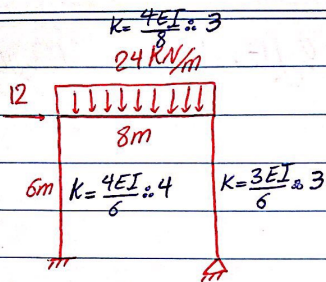 K= 4EI/8 ∴ 3
24 KN/m
12
8m
6m
K= 4EI/6 ∴ 4
K= 3EI/6 ∴ 3